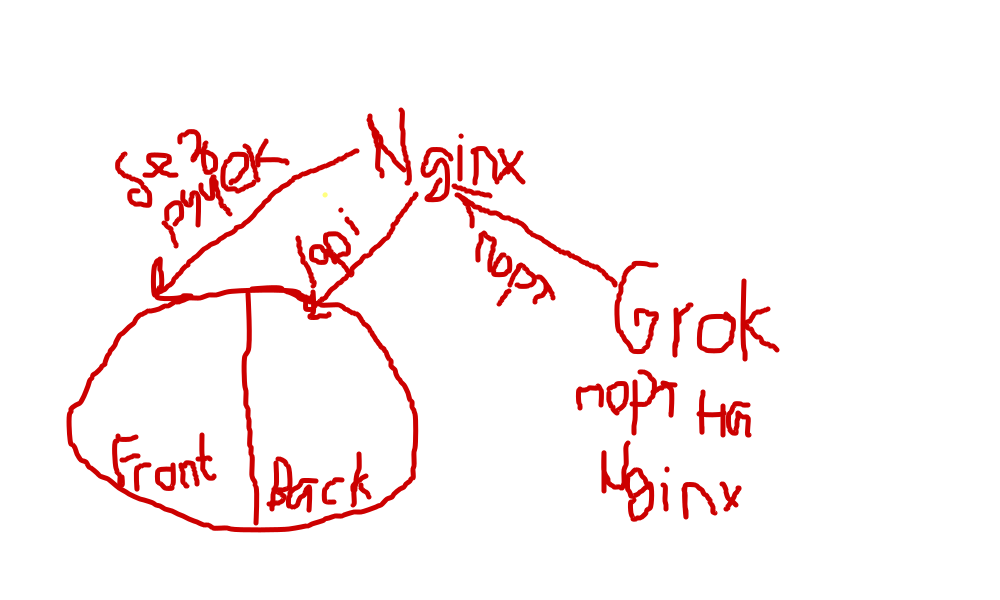 Nginx
без
ручок
/api
порт
Grok
порт на
Nginx
Front
Back